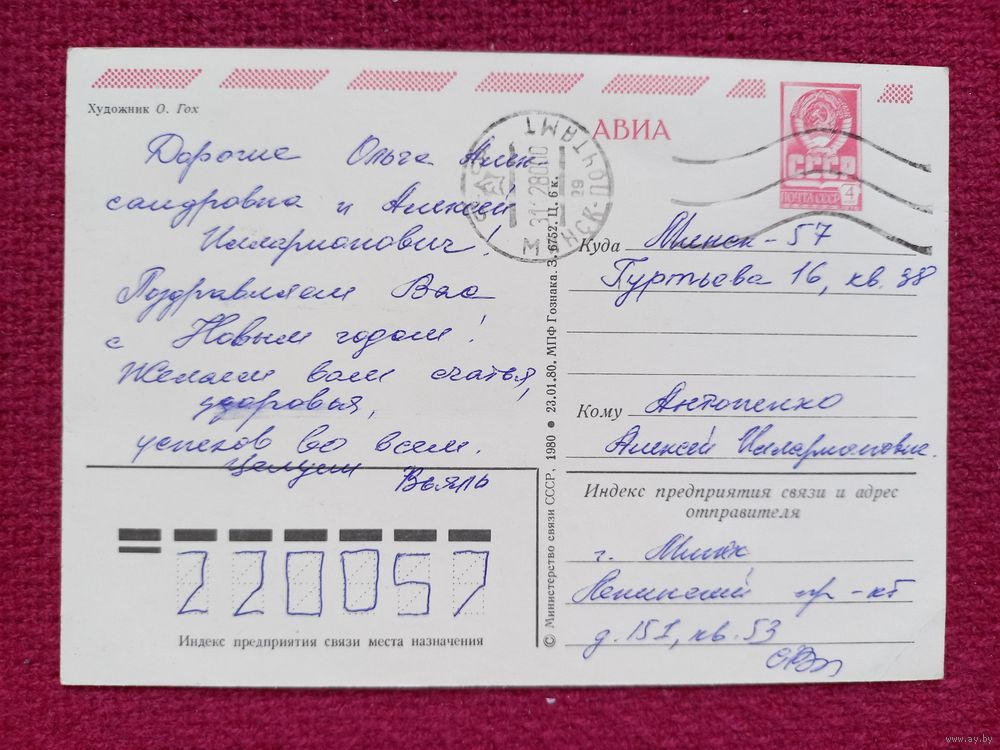 Художник О. Гох
АВИА
СССР
ПОЧТА СССР
4
Дорогие Ольга Алек
сандровна и Алексей
Илларионович!
Поздравляем Вас
с Новым годом!
Желаем вам счастья,
здоровья,
успехов во всем.
Целуем
Куда Минск-57
Гуртьева 16, кв. 38
Кому Антоненко
Алексей Илларионович
Индекс предприятия связи и адрес
отправителя
г. Минск
Ленинский пр-кт
д. 151, кв. 53
220057
Индекс предприятия связи места назначения
© Министерство связи СССР, 1980 • 23.01.80. МПФ Гознака. З. 6752. Ц. 6 к.
www.ay.by